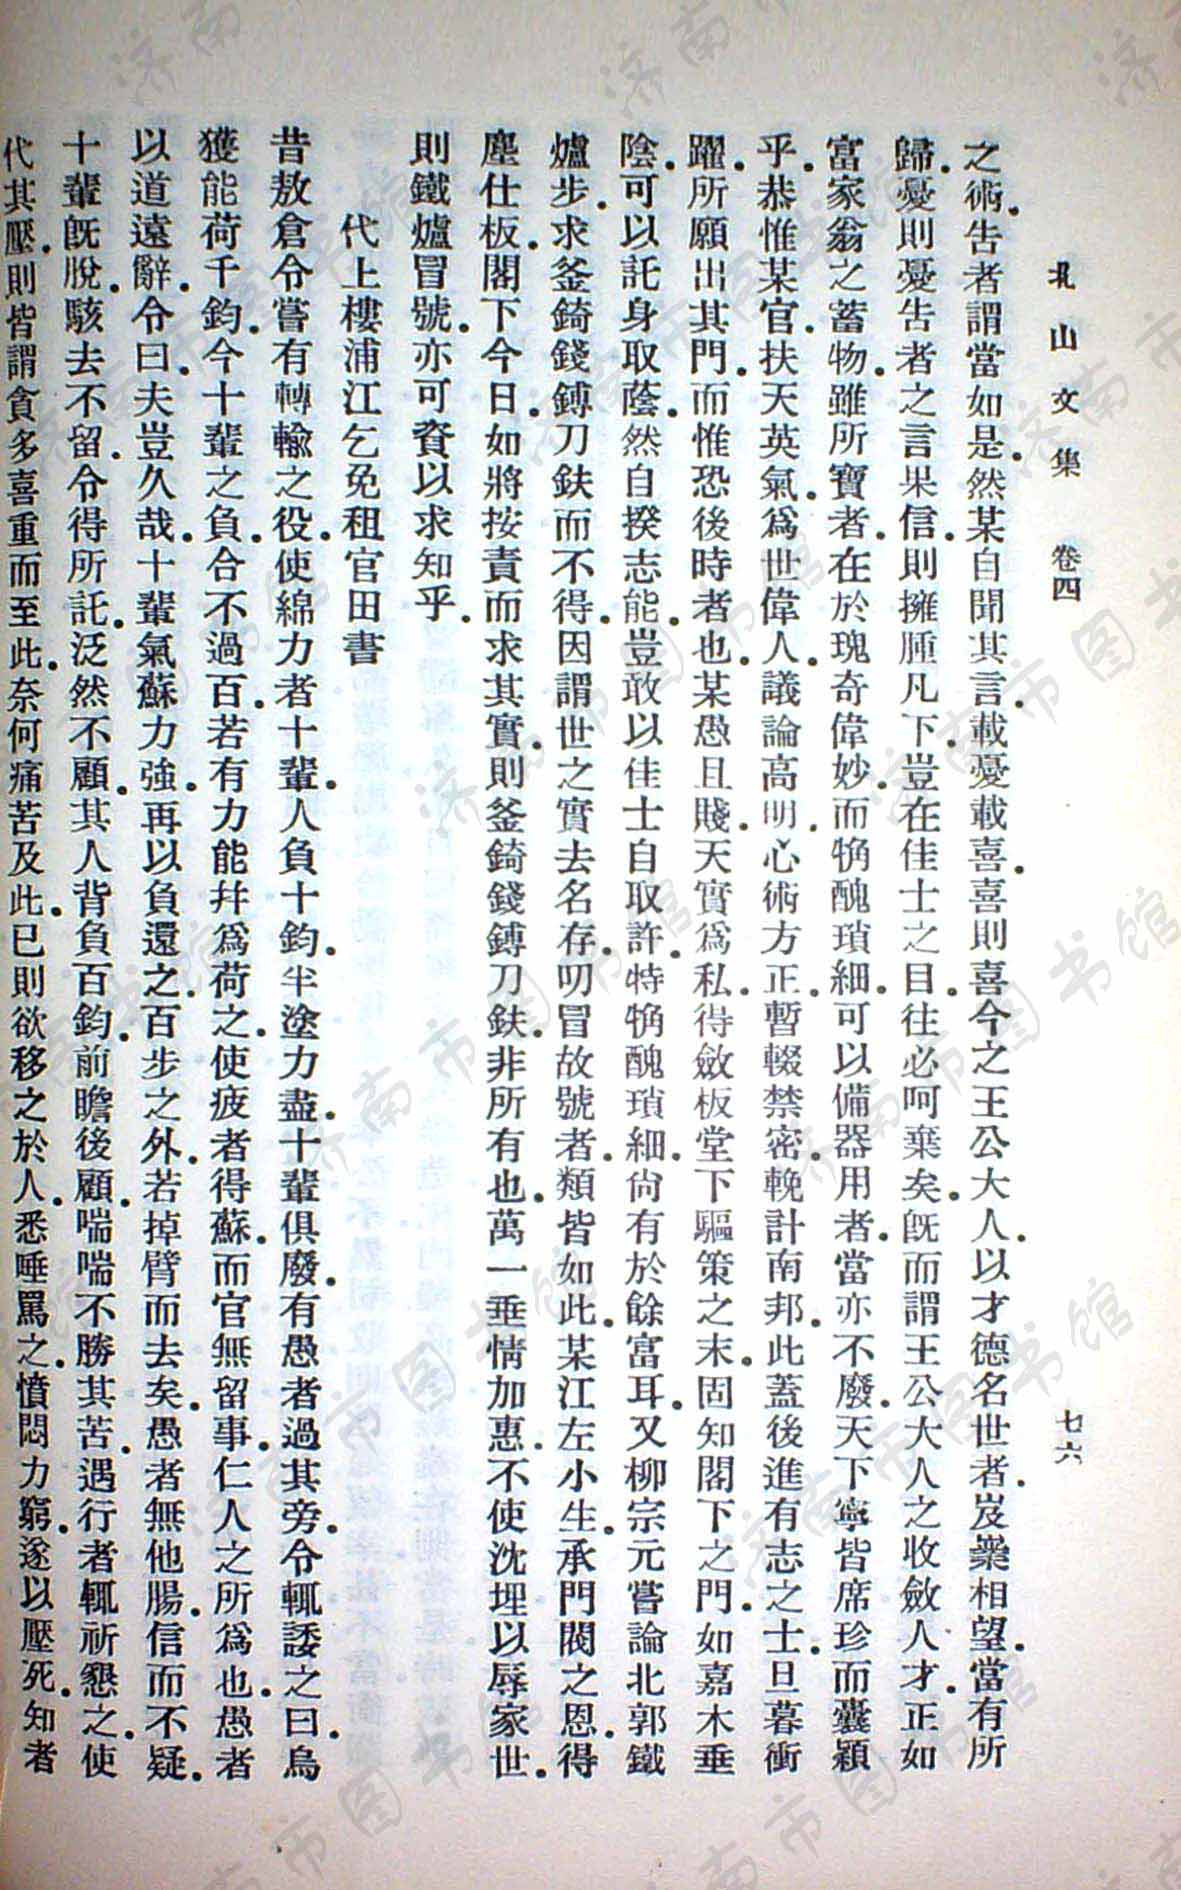 北山文集 卷四 七六
之術。告者謂當如是。然某自聞其言。載憂載喜。喜則喜今之王公大人。以才德名世者。岌嶪相望。當有所
歸。憂則憂告者之言果信。則擁腫凡下。豈在佳士之目。往必呵棄矣。旣而謂王公大人之收斂人才。正如
富家翁之蓄物。雖所寶者。在於瑰奇偉妙。而觕醜瑣細。可以備器用者。當亦不廢。天下寧皆席珍而囊穎
乎。恭惟某官。扶天英氣。爲世偉人。議論高明。心術方正。暫輟禁密。輓計南邦。此蓋後進有志之士。旦暮衝
躍。所願出其門。而惟恐後時者也。某愚且賤。天實爲私。得斂板堂下驅策之末。固知閣下之門。如嘉木垂
陰。可以託身取蔭。然自揆志能。豈敢以佳士自取許。特觕醜瑣細。尙有於餘富耳。又柳宗元嘗論北郭鐵
爐步。求釜錡錢鎛刀鈇而不得。因謂世之實去名存。叨冒故號者。類皆如此。某江左小生。承門閥之恩。得
塵仕板。閣下今日。如將按責而求其實。則釜錡錢鎛刀鈇。非所有也。萬一垂情加惠。不使沈埋以辱家世。
則鐵爐冒號。亦可資以求知乎。
代上樓浦江乞免租官田書
昔敖倉令嘗有轉輸之役。使綿力者十輩。人負十鈞。半塗力盡。十輩俱廢。有愚者過其旁。令輒諉之曰。烏
獲能荷千鈞。今十輩之負。合不過百。若有力能幷爲荷之。使疲者得蘇。而官無留事。仁人之所爲也。愚者
以道遠辭。令曰。夫豈久哉。十輩氣蘇力強。再以負還之。百步之外。若掉臂而去矣。愚者無他腸。信而不疑。
十輩旣脫。駭去不留。令得所託。泛然不顧。其人背負百鈞。前瞻後顧。喘喘不勝其苦。遇行者輒祈懇之。使
代其壓。則皆謂貪多喜重而至此。奈何痛苦及此。已則欲移之於人。悉唾罵之。憤悶力窮。遂以壓死。知者